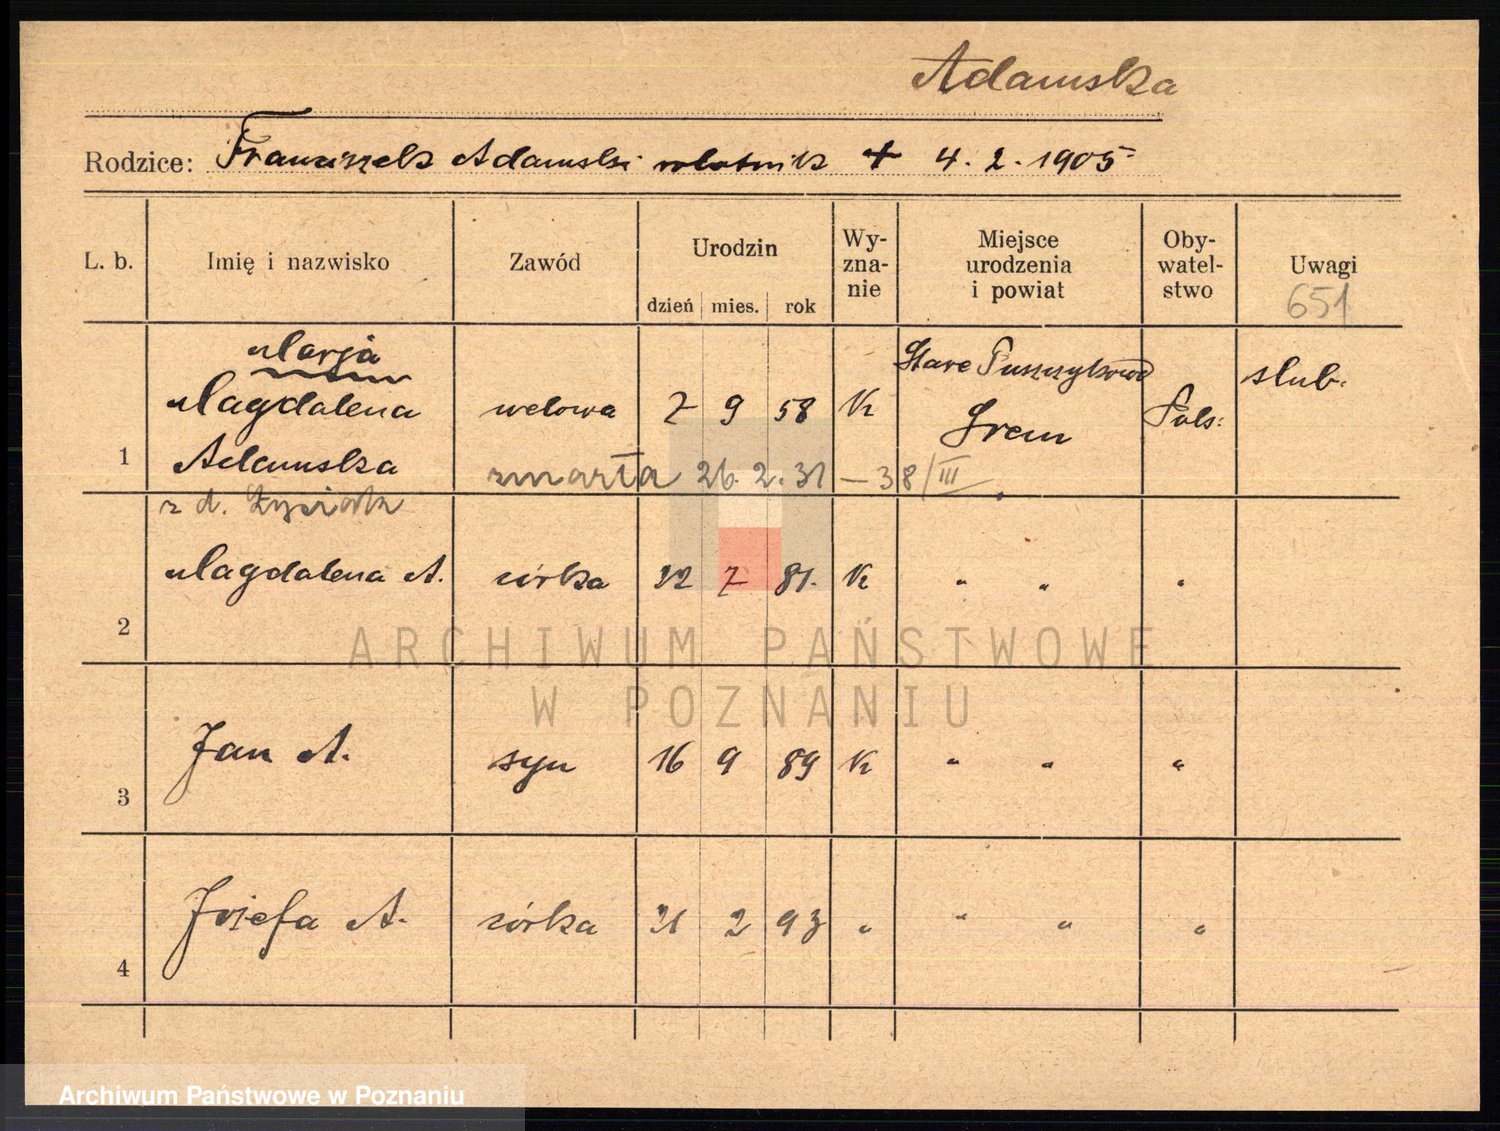 Adamska
Rodzice: Franciszek Adamski robotnik + 4. 2. 1905
L. b. Imię i nazwisko Zawód Urodzin dzień mies. rok Wy-zna-nie Miejsce urodzenia i powiat Oby-watel-stwo Uwagi
651
Marja
Magdalena
1 Adamska wdowa 7 9 58 K Stare Puszczykowo Śrem Pols: slub.
zmarła 26. 2. 31 – 38/III
z d.
2 Magdalena A. córka 22 7 81. K " " "
3 Jan A. syn 16 9 89 K " " "
4 Józefa A. córka 21 2 93 " " " "
ARCHIWUM PAŃSTWOWE
W POZNANIU
Archiwum Państwowe w Poznaniu